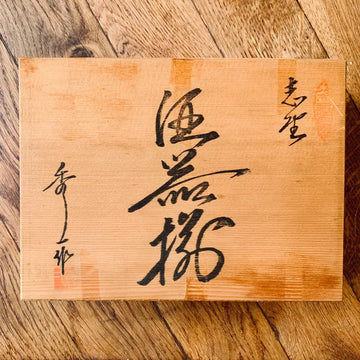 志野
酒器揃
秀一作